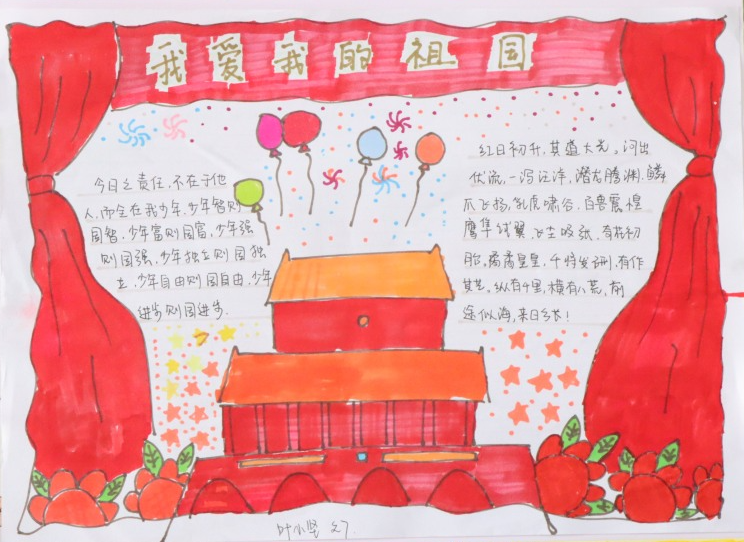 我爱我的祖国
今日之责任,不在于他
人,而全在我少年,少年智则
国智,少年富则国富,少年强
则国强,少年独立则国独
立,少年自由则国自由,少年
进步则国进步.
红日初升,其道大光,河出
伏流,一泻汪洋,潜龙腾渊,鳞
爪飞扬,乳虎啸谷,百兽震惶
鹰隼试翼,飞尘吸张,奇花初
胎,矞矞皇皇,干将发硎,有作
其芒,纵有千里,横有八荒,前
途似海,来日方长!
叶小坚